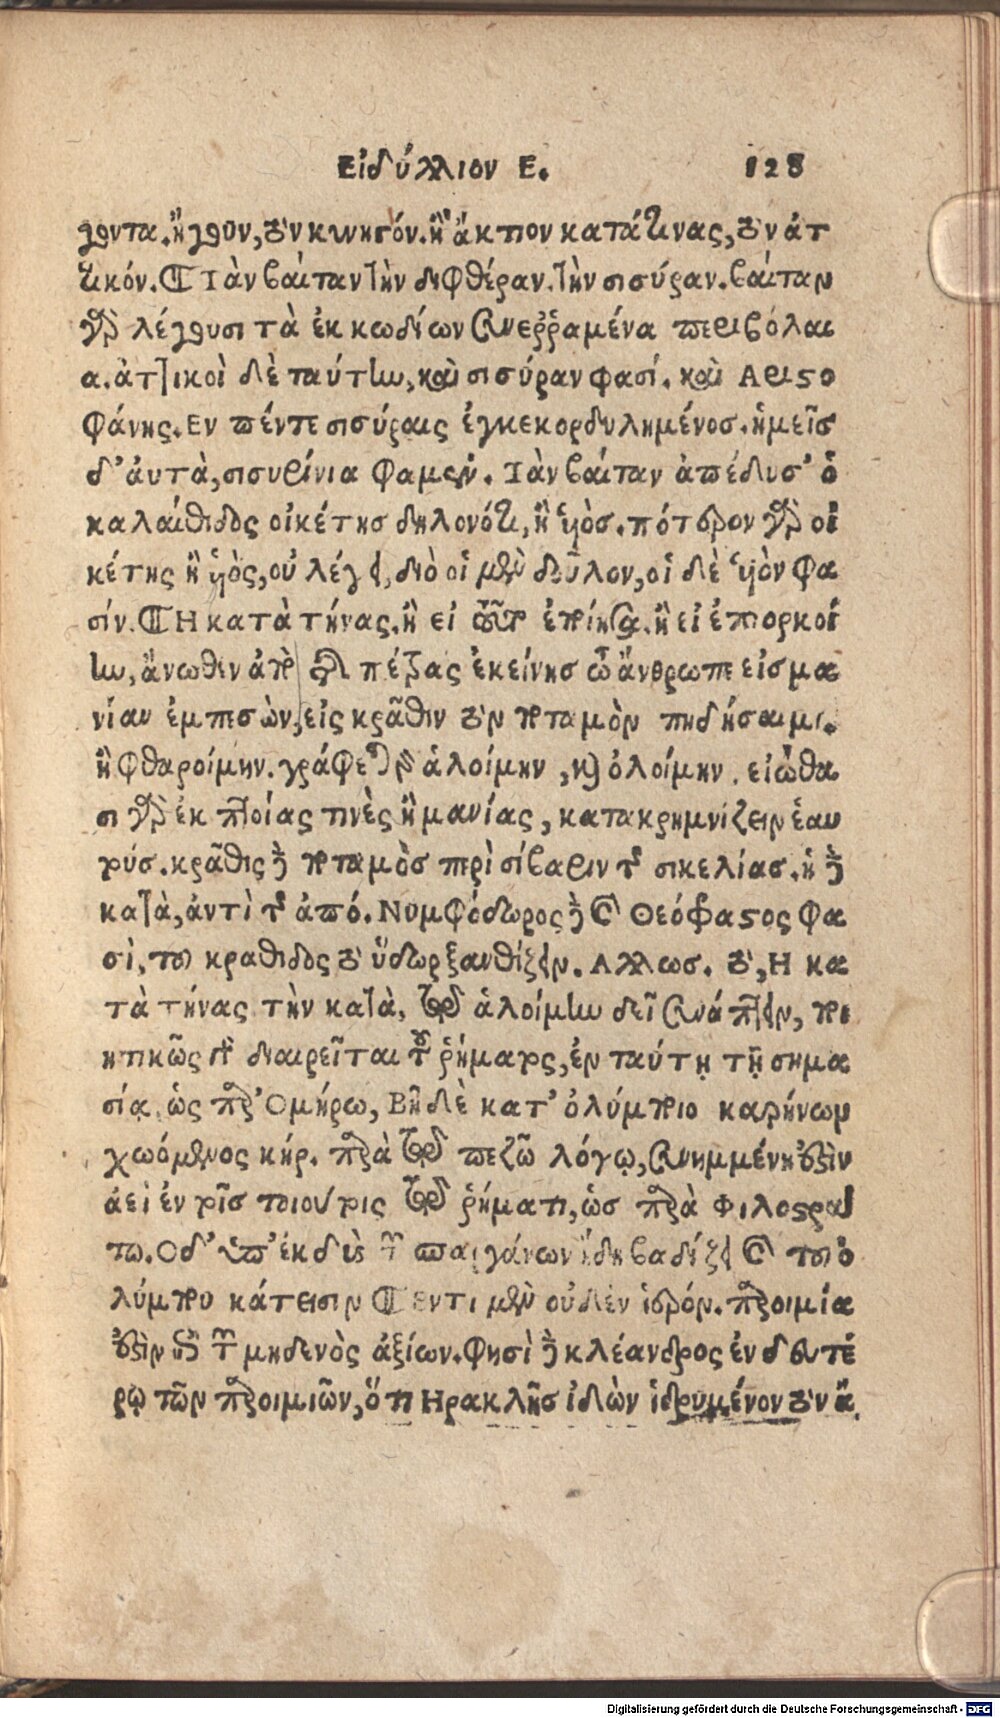 Εἰδύλλιον Ε. 128
χοντα. ἢ ἔχουν, τὸν κυνηγόν. ἢ ἄκτιον κατά τινας, τὸν ἀτ
τικόν. ¶ Τὰν βαίταν τὴν διφθέραν. τὴν σισύραν. βαίταν
γὰρ λέγουσι τὰ ἐκ κωδίων συνεῤῥαμένα περιβόλαι
α. ἀττικοὶ δὲ ταύτην, καὶ σισύραν φασί. καὶ Αριστο
φάνης. Εν πέντε σισύραις ἐγκεκορδυλημένος. ἡμεῖς
δ' ἀυτὰ, σισυρίνια φαμέν. Τὰν βαίταν ἀπέδυσ' ὁ
καλαίθιδος οἰκέτης δηλονότι, ἢ ὑιός. πότερον γὰρ οἰ
κέτης ἢ ὑιὸς, οὐ λέγει, διὸ οἱ μὲν δοῦλον, οἱ δὲ ὑιὸν φα
σίν. ¶ Η κατὰ τήνας. ἢ εἰ τοῦτο ἐποίησα. ἢ εἰ ἐπιορκοί
ην, ἄνωθεν ἀπὸ τῆς πέτρας ἐκείνης ὦ ἄνθρωπε εἰς μα
νίαν ἐμπεσὼν, εἰς κρᾶθιν τὸν ποταμὸν πηδήσαιμι.
ἢ φθαροίμην. γράφεται γὰρ ἁλοίμην, καὶ ὀλοίμην. εἰώθα
σι γὰρ ἐκ πτοίας τινὲς ἢ μανίας, κατακρημνίζειν ἑαυ
τούς. κρᾶθις δὲ ποταμὸς περὶ σίβαριν τῆς σικελίας. ἡ δὲ
κατὰ, ἀντὶ τῆς ἀπό. Νυμφόδωρος δὲ καὶ Θεόφραστος φα
σὶ, τοῦ κραθιδος τὸ ὕδωρ ξανθίζειν. Αλλως. τὸ, Η κα
τὰ τήνας τὴν κατὰ, τῷ ἁλοίμην δεῖ συνάπτειν, ποι
ητικῶς γὰρ διαιρεῖται τοῦ ῥήματος, ἐν ταύτῃ τῇ σημα
σίᾳ. ὡς παρ' Ομήρω, Βῆ δὲ κατ' ὀλύμποιο καρήνων
χωόμενος κήρ. παρὰ τῷ πεζῶ λόγῳ, συνημμένη ἐστὶν
ἀεὶ ἐν τοῖς τοιούτοις τῷ ῥήματι, ὡς παρὰ Φιλοστρά
τω. Οδ' ὑπ' ἐκ δὶς τῶν παιγάνων ἤδη βαδίζει καὶ τοῦ ὀ
λύμπου κάτεισιν ¶ Εντι μὲν οὐδὲν ἱερόν. παροιμία
ἐστὶν ἐπὶ τῶν μηδενὸς ἀξίων. φησὶ δὲ κλέανδρος ἐν δευτέ
ρῳ τῶν παροιμιῶν, ὅτι Ηρακλῆς ἰδὼν ἱδρυμένον τὸν ἄ
Digitalisierung gefördert durch die Deutsche Forschungsgemeinschaft - DFG